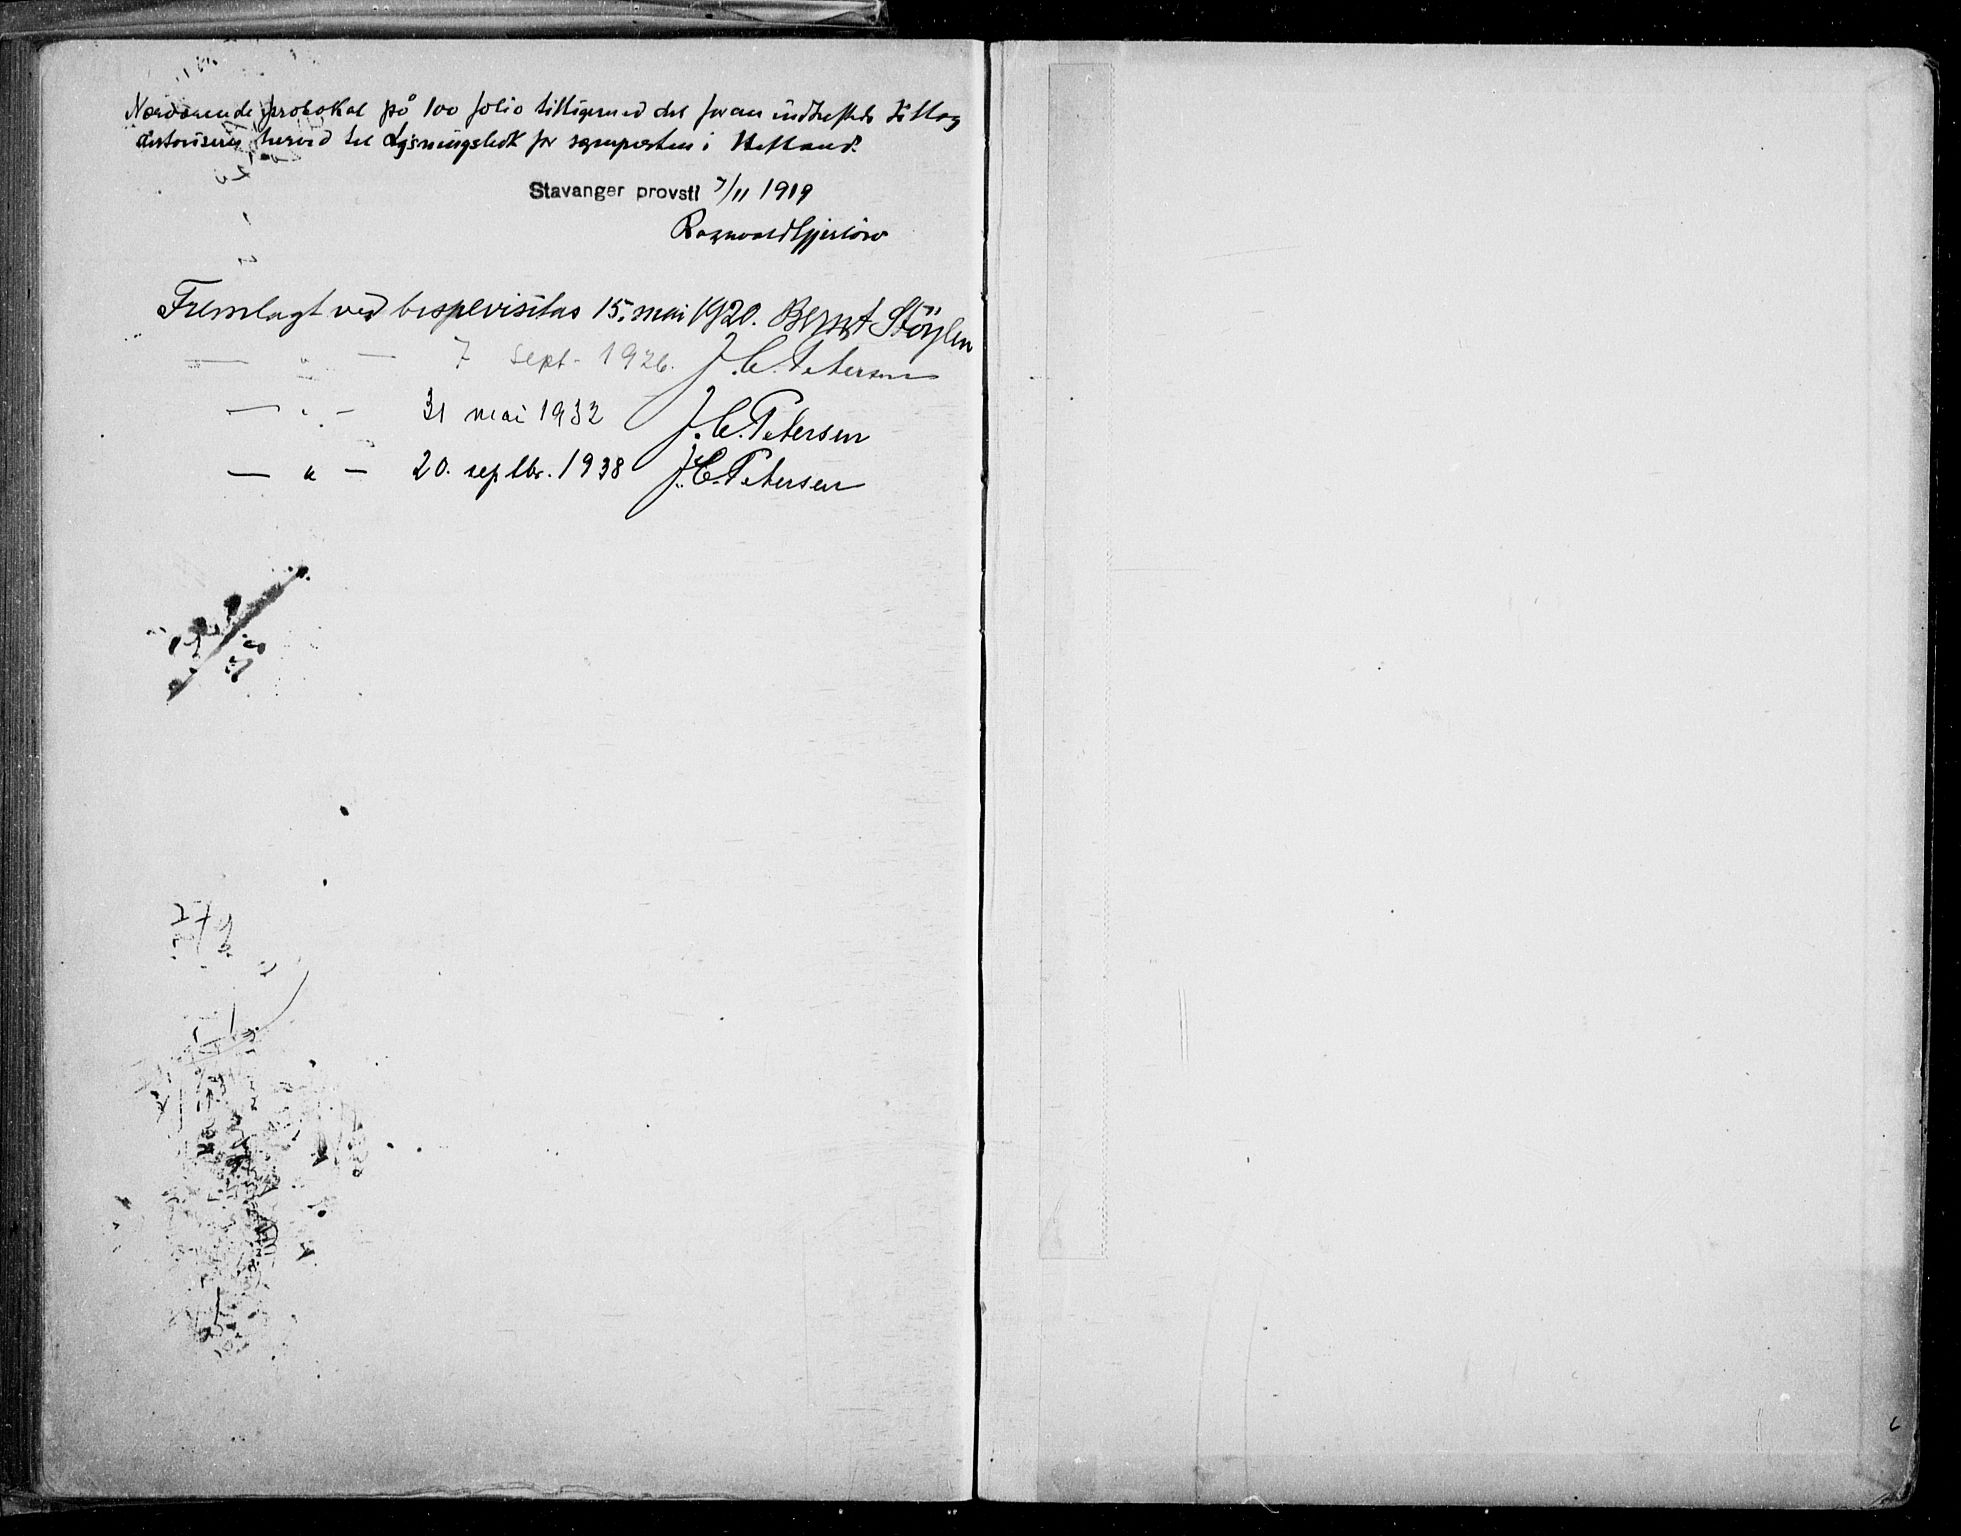 Nærværende protokol på 100 folio tilligemed det foran indheftede tillæg
autoriseres herved til Lysningsbok for sognepresten i Hetland.
Stavanger provsti 7/11 1919
Ragnvald Gjerløw
Fremlagt ved bispevisitas 15. mai 1920. Bernt Støylen
— " — 7 sept. 1926. J. C. Petersen
— " — 31 mai 1932 J. C. Petersen
— " — 20. septbr. 1938 J. C. Petersen